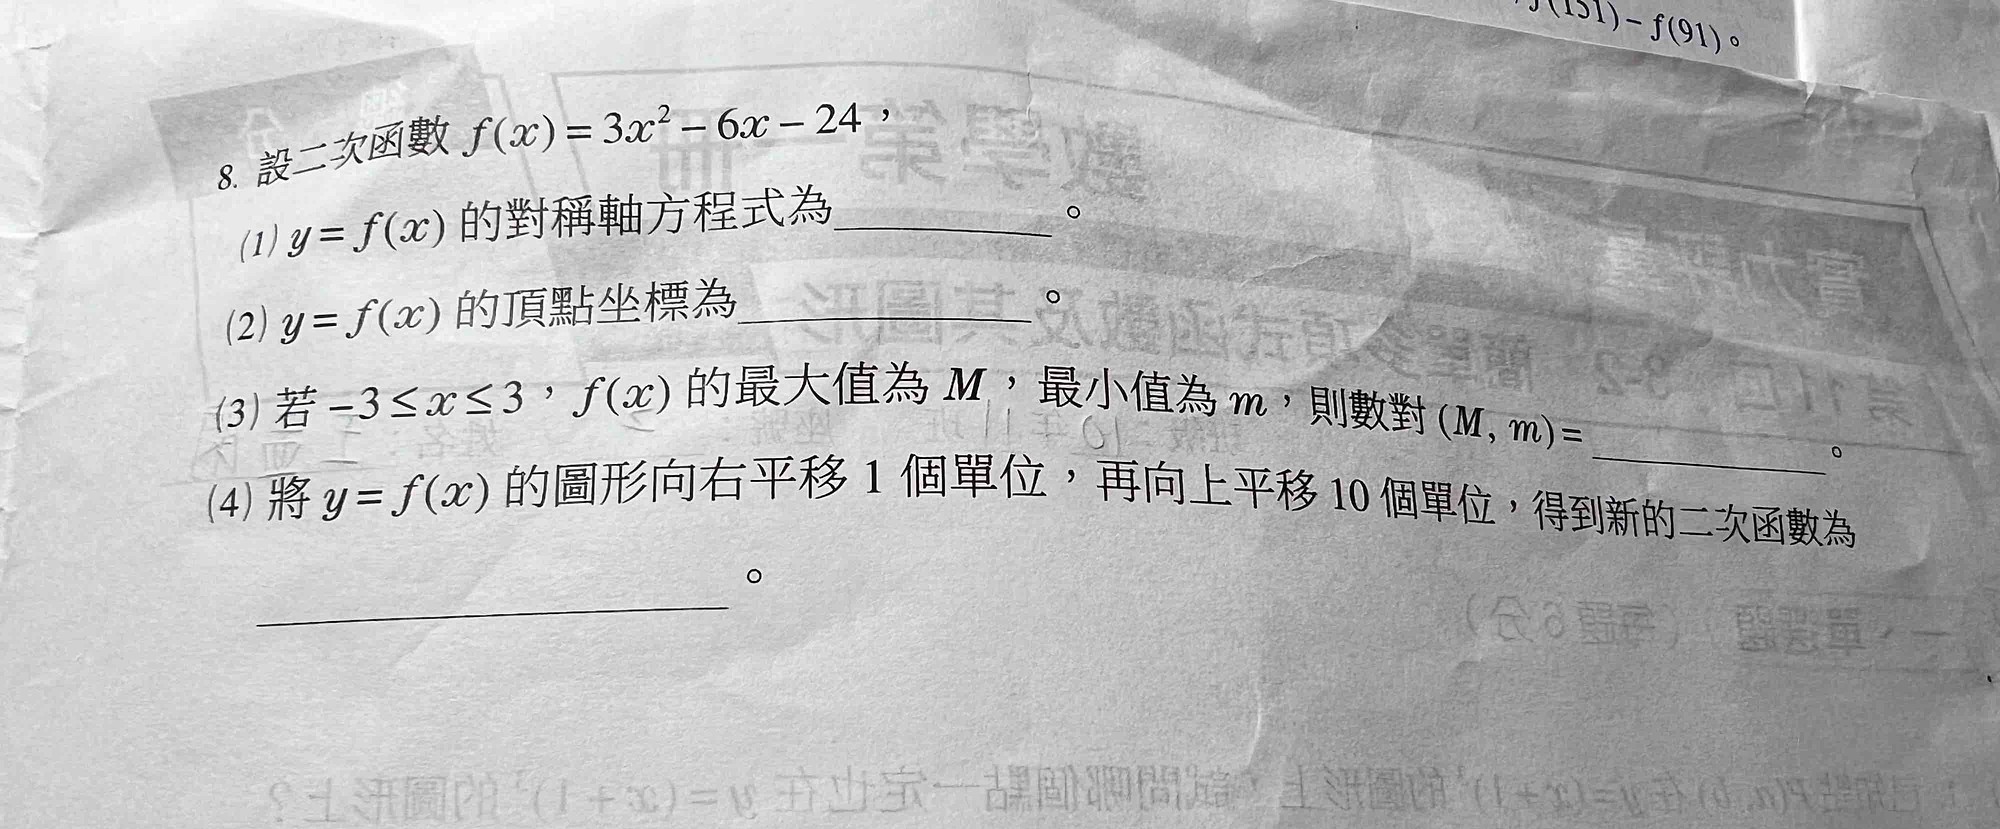 f(151) − f(91)。
8. 設二次函數 f(x) = 3x² − 6x − 24，
(1) y = f(x) 的對稱軸方程式為________。
(2) y = f(x) 的頂點坐標為________。
(3) 若 −3 ≤ x ≤ 3，f(x) 的最大值為 M，最小值為 m，則數對 (M, m) = ________。
(4) 將 y = f(x) 的圖形向右平移 1 個單位，再向上平移 10 個單位，得到新的二次函數為
________。